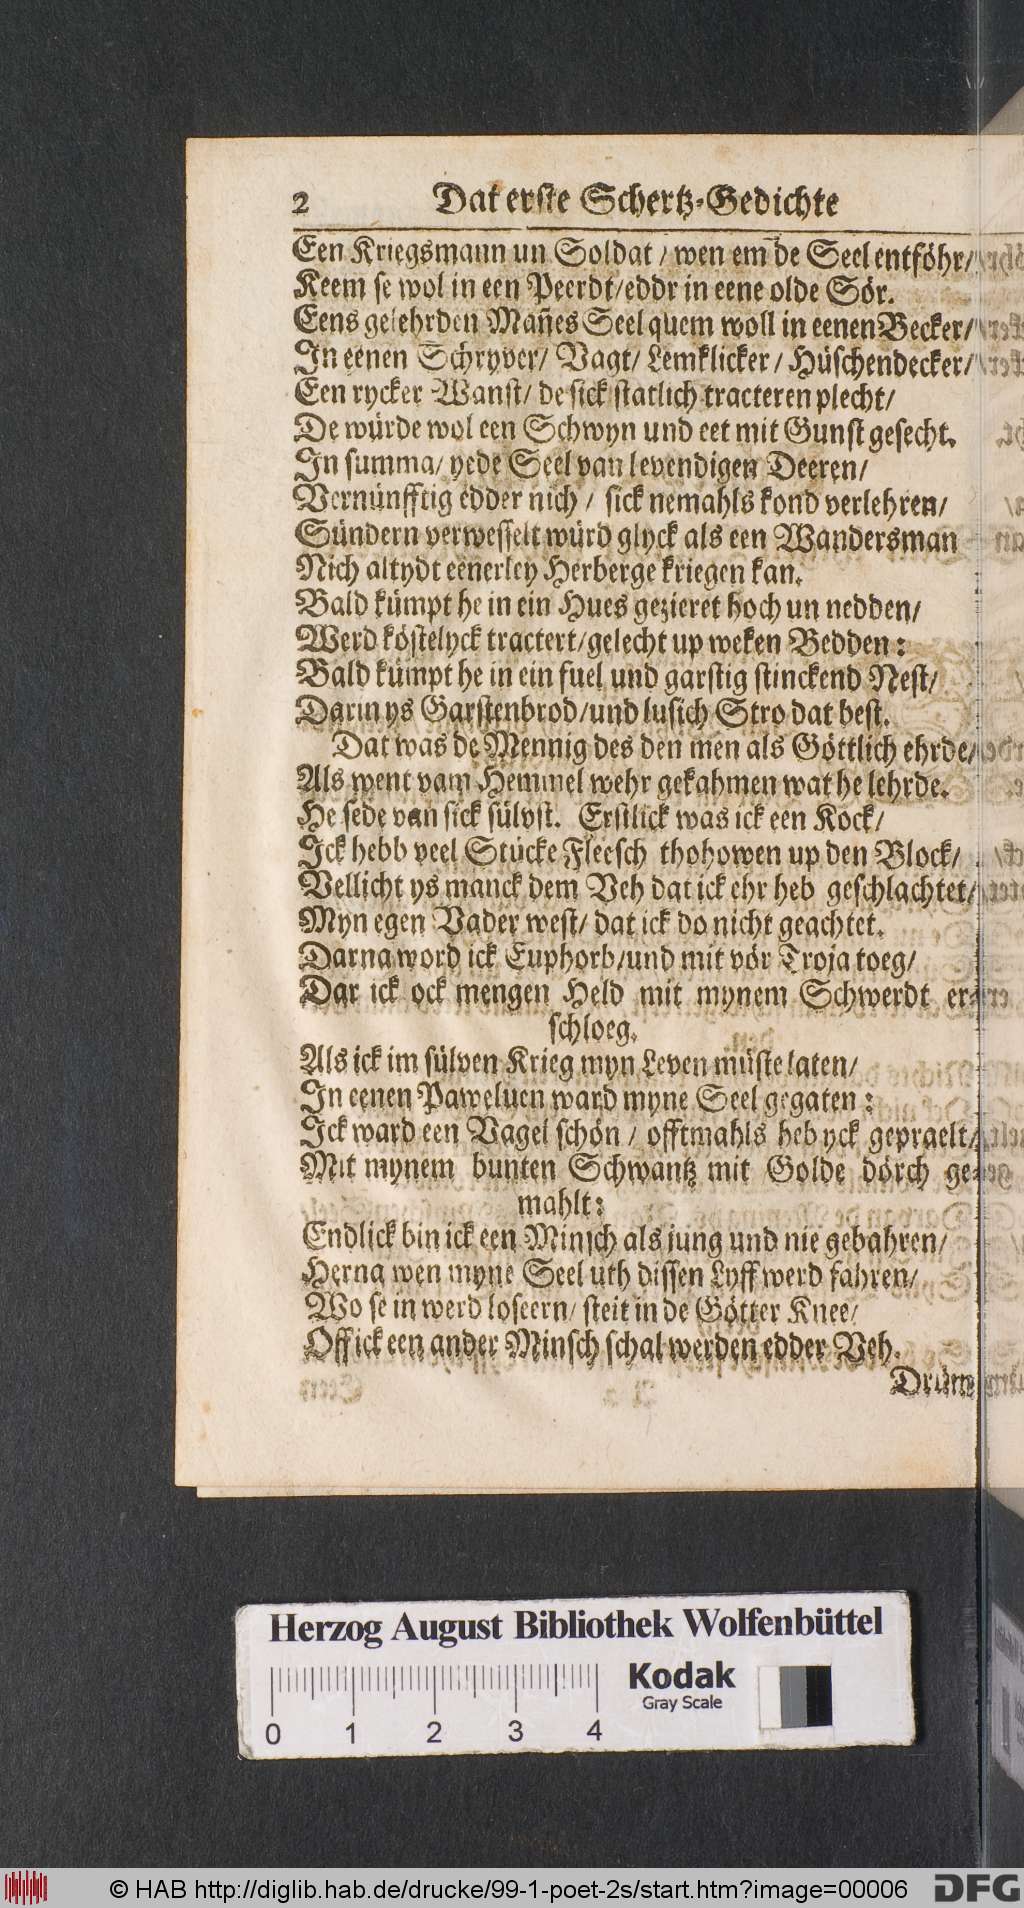 2 Dat erste Schertz-Gedichte
Een Kriegsmann un Soldat / wen em de Seel entföhr/
Keem se wol in een Peerdt/eddr in eene olde Sör.
Eens gelehrden Mañes Seel quem woll in eenen Becker/
In eenen Schryver/ Vagt/ Lemklicker / Hüschendecker/
Een rycker Wanst/ de sick statlich tracteren plecht/
De würde wol een Schwyn und eet mit Gunst gesecht.
In summa/ yede Seel van levendigen Deeren/
Vernünfftig edder nich / sick nemahls kond verlehren/
Sündern verwesselt würd glyck als een Wandersman
Nich altydt eenerley Herberge kriegen kan.
Bald kümpt he in ein Hues gezieret hoch un nedden/
Werd köstelyck tractert/gelecht up weken Bedden:
Bald kümpt he in ein fuel und garstig stinckend Nest/
Darin ys Garstenbrod/und lusich Stro dat best.
Dat was de Mennig des den men als Göttlich ehrde/
Als went vam Hemmel wehr gekahmen wat he lehrde.
He sede van sick sülvst. Erstlick was ick een Kock/
Ick hebb veel Stücke Fleesch thohowen up den Block/
Vellicht ys manck dem Veh dat ick ehr heb geschlachtet/
Myn egen Vader west/ dat ick do nicht geachtet.
Darna word ick Euphorb/und mit vör Troja toeg/
Dar ick ock mengen Held mit mynem Schwerdt er-
schloeg.
Als ick im sülven Krieg myn Leven müste laten/
In eenen Paweluen ward myne Seel gegaten:
Ick ward een Vagel schön / offtmahls heb yck gepraelt/
Mit mynem bunten Schwantz mit Golde dörch ge-
mahlt:
Endlick bin ick een Minsch als jung und nie gebahren/
Herna wen myne Seel uth dissen Lyff werd fahren/
Wo se in werd loseern/ steit in de Götter Knee/
Off ick een ander Minsch schal werden edder Veh.
Drüm
Herzog August Bibliothek Wolfenbüttel
Kodak
Gray Scale
0 1 2 3 4
© HAB http://diglib.hab.de/drucke/99-1-poet-2s/start.htm?image=00006
DFG